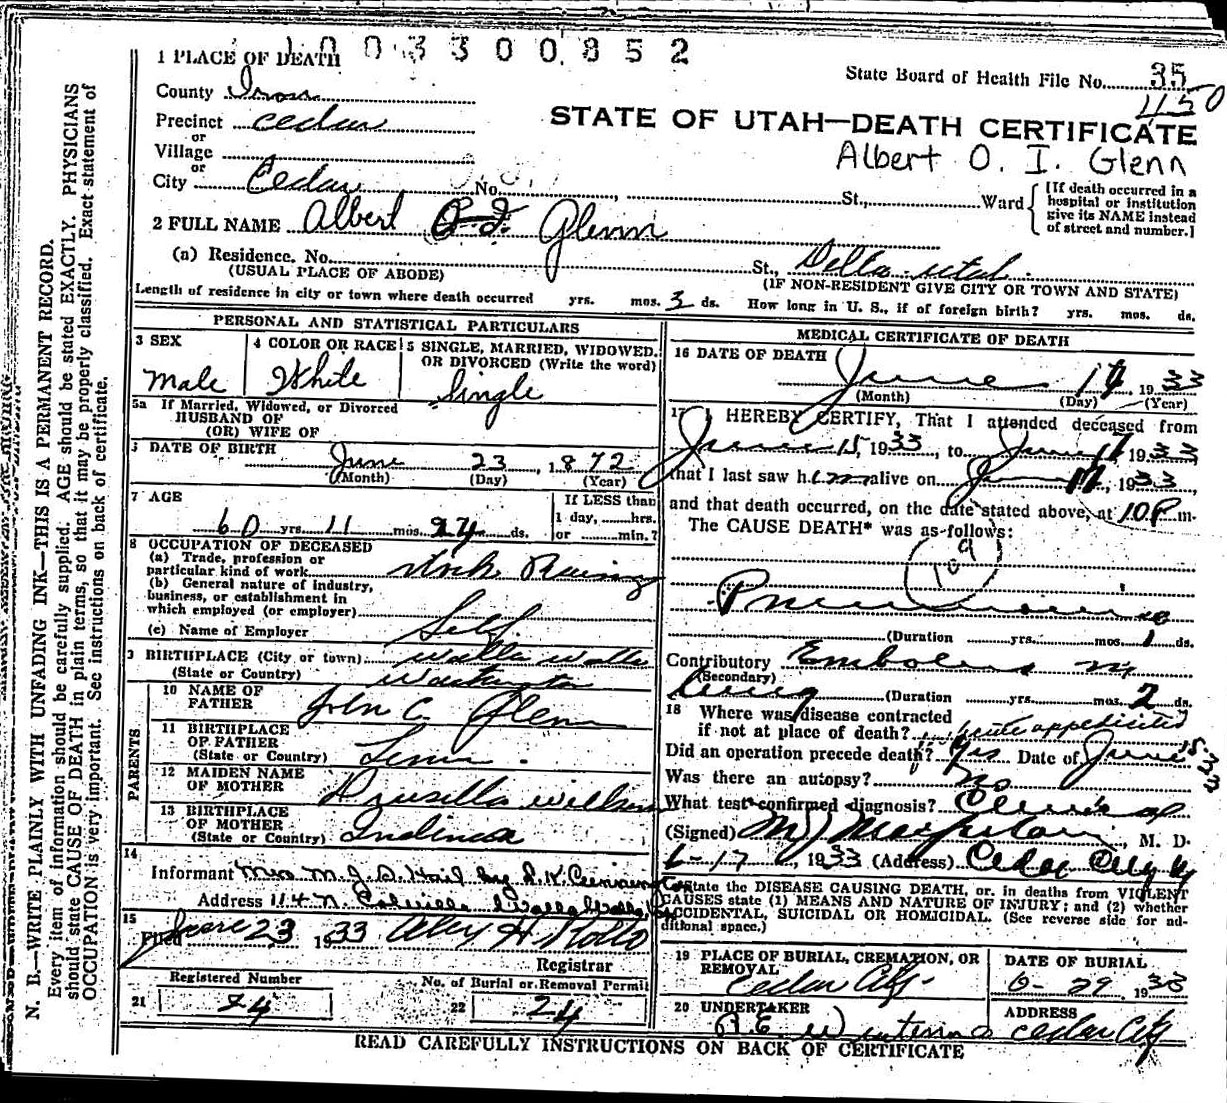 1003300852
1 PLACE OF DEATH
State Board of Health File No. 35
450
County Iron
Precinct Cedar
or
Village
or
City Cedar No. St., Ward
STATE OF UTAH—DEATH CERTIFICATE
Albert O. I. Glenn
[If death occurred in a hospital or institution give its NAME instead of street and number.]
2 FULL NAME Albert O. I. Glenn
(a) Residence. No. St., Delta Utah.
(USUAL PLACE OF ABODE) (IF NON-RESIDENT GIVE CITY OR TOWN AND STATE)
Length of residence in city or town where death occurred yrs. mos. 3 ds. How long in U. S., if of foreign birth? yrs. mos. ds.
PERSONAL AND STATISTICAL PARTICULARS
3 SEX Male
4 COLOR OR RACE White
5 SINGLE, MARRIED, WIDOWED, OR DIVORCED (Write the word) Single
5a If Married, Widowed, or Divorced
HUSBAND OF
(OR) WIFE OF
6 DATE OF BIRTH June 23, 1872
(Month) (Day) (Year)
7 AGE 60 yrs. 11 mos. 24 ds.
If LESS than
1 day, hrs.
or min.?
8 OCCUPATION OF DECEASED
(a) Trade, profession or
particular kind of work Stock Raising
(b) General nature of industry,
business, or establishment in
which employed (or employer) Self
(c) Name of Employer
9 BIRTHPLACE (City or town) Walla Walla
(State or Country) Washington
PARENTS
10 NAME OF FATHER John C. Glenn
11 BIRTHPLACE OF FATHER
(State or Country) Tenn.
12 MAIDEN NAME OF MOTHER Drusilla
13 BIRTHPLACE OF MOTHER
(State or Country) Indiana
14
Informant Mrs. M. J. D. by
Address 114 N. Colville Walla Walla
15
Filed June 23 1933 Alex H. Rollo
Registrar
Registered Number
21 24
No. of Burial or Removal Permit
22 24
MEDICAL CERTIFICATE OF DEATH
16 DATE OF DEATH June 17 1933
(Month) (Day) (Year)
17 I HEREBY CERTIFY, That I attended deceased from
June 15, 1933, to June 17 1933,
that I last saw him alive on June 17, 1933,
and that death occurred, on the date stated above, at 10 P m.
The CAUSE DEATH* was as follows:
Pneumonia
(Duration yrs. mos. 1 ds.
Contributory Embolus in
(Secondary)
Lung (Duration yrs. mos. 2 ds.
18 Where was disease contracted
if not at place of death? acute appendicitis
Did an operation precede death? Yes Date of June 15-33
Was there an autopsy? No
What test confirmed diagnosis? Clinical
(Signed) M. D.
6-17, 1933 (Address) Cedar City
*State the DISEASE CAUSING DEATH, or, in deaths from VIOLENT
CAUSES state (1) MEANS AND NATURE OF INJURY; and (2) whether
ACCIDENTAL, SUICIDAL OR HOMICIDAL. (See reverse side for additional space.)
19 PLACE OF BURIAL, CREMATION, OR REMOVAL Cedar City
DATE OF BURIAL 6-29, 1933
20 UNDERTAKER
ADDRESS Cedar City
READ CAREFULLY INSTRUCTIONS ON BACK OF CERTIFICATE
N. B.—WRITE PLAINLY WITH UNFADING INK—THIS IS A PERMANENT RECORD.
Every item of information should be carefully supplied. AGE should be stated EXACTLY. PHYSICIANS
should state CAUSE OF DEATH in plain terms, so that it may be properly classified. Exact statement of
OCCUPATION is very important. See instructions on back of certificate.